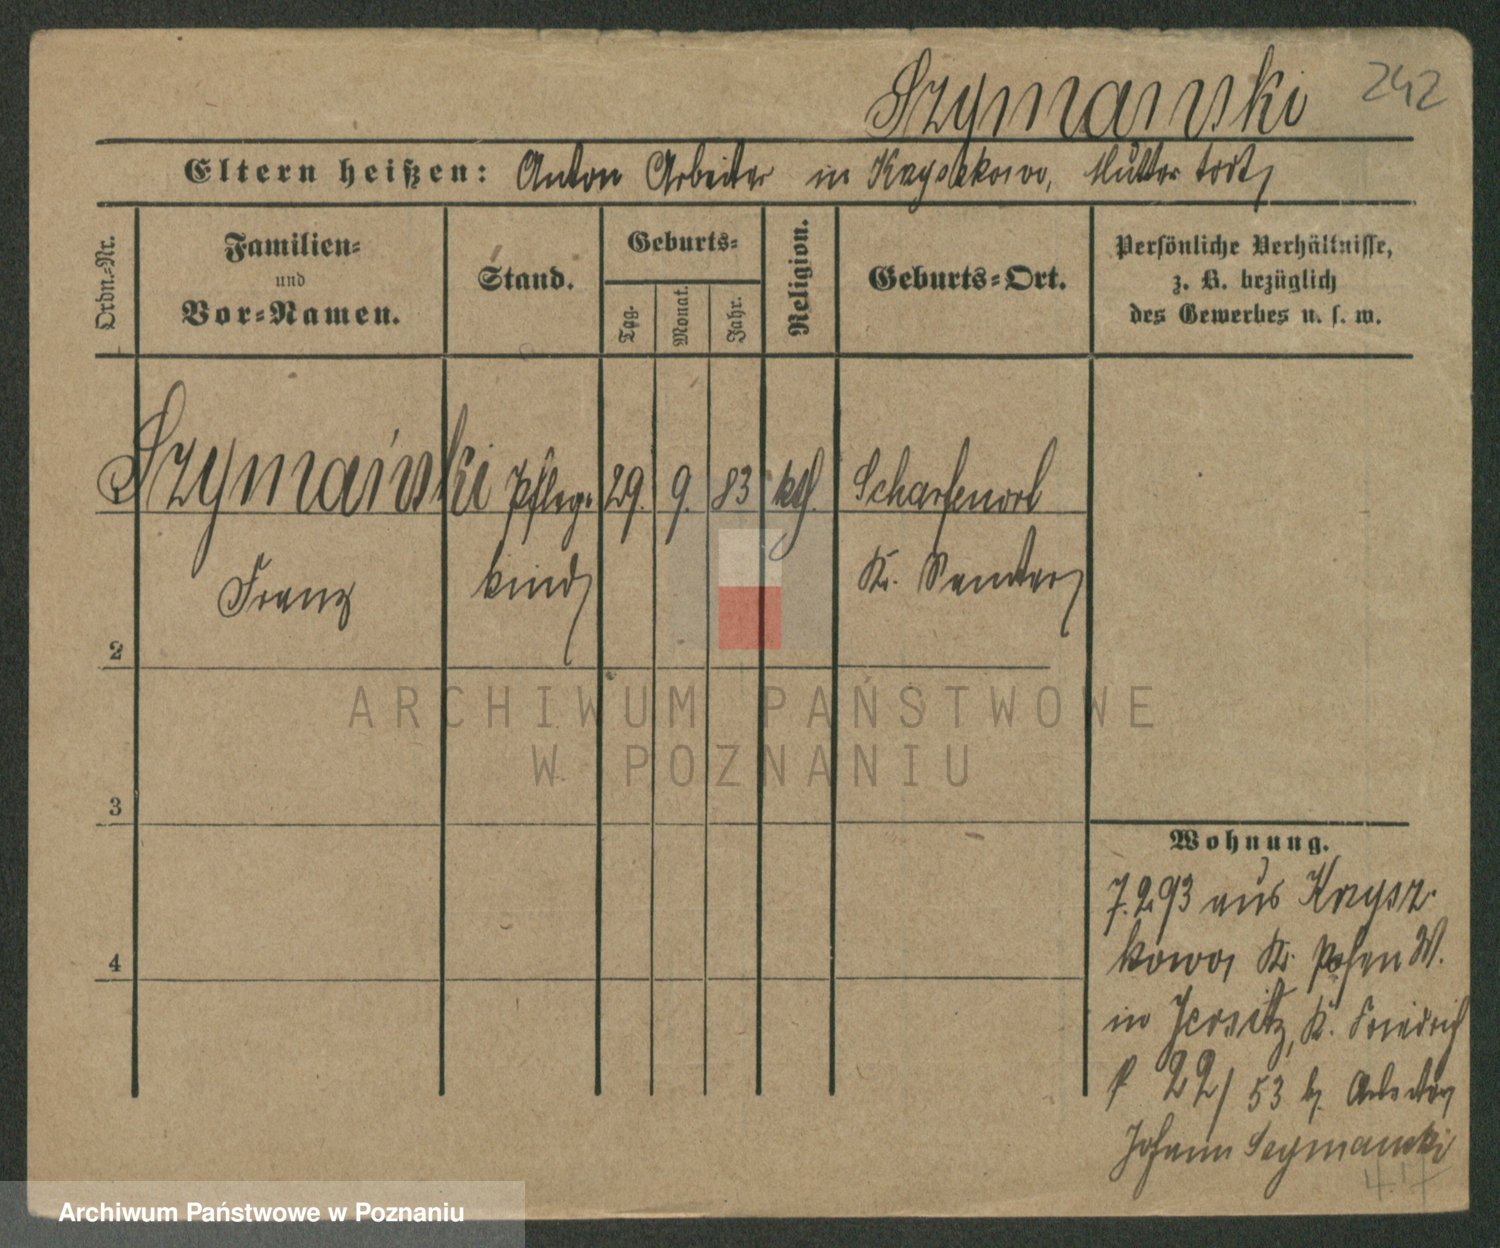 Szymański 242
Eltern heißen: Anton Arbeiter in Krzyszkowo, Mutter todt,
Ordn.-Nr.
Familien-
und
Vor-Namen.
Stand.
Geburts-
Tag.
Monat.
Jahr.
Religion.
Geburts-Ort.
Persönliche Verhältnisse,
z. B. bezüglich
des Gewerbes u. s. w.
Szymański Pfleg- 29. 9. 83 kth. Scharfenort
Franz kind Kr. Samter
2
3
4
Wohnung.
7.2.93 aus Krzysz-
kowo, Kr. Posen W.
in Jersitz, K. Friedrich
22/53 b. Arbeiter
Johann Szymanski
417
ARCHIWUM PAŃSTWOWE
W POZNANIU
Archiwum Państwowe w Poznaniu